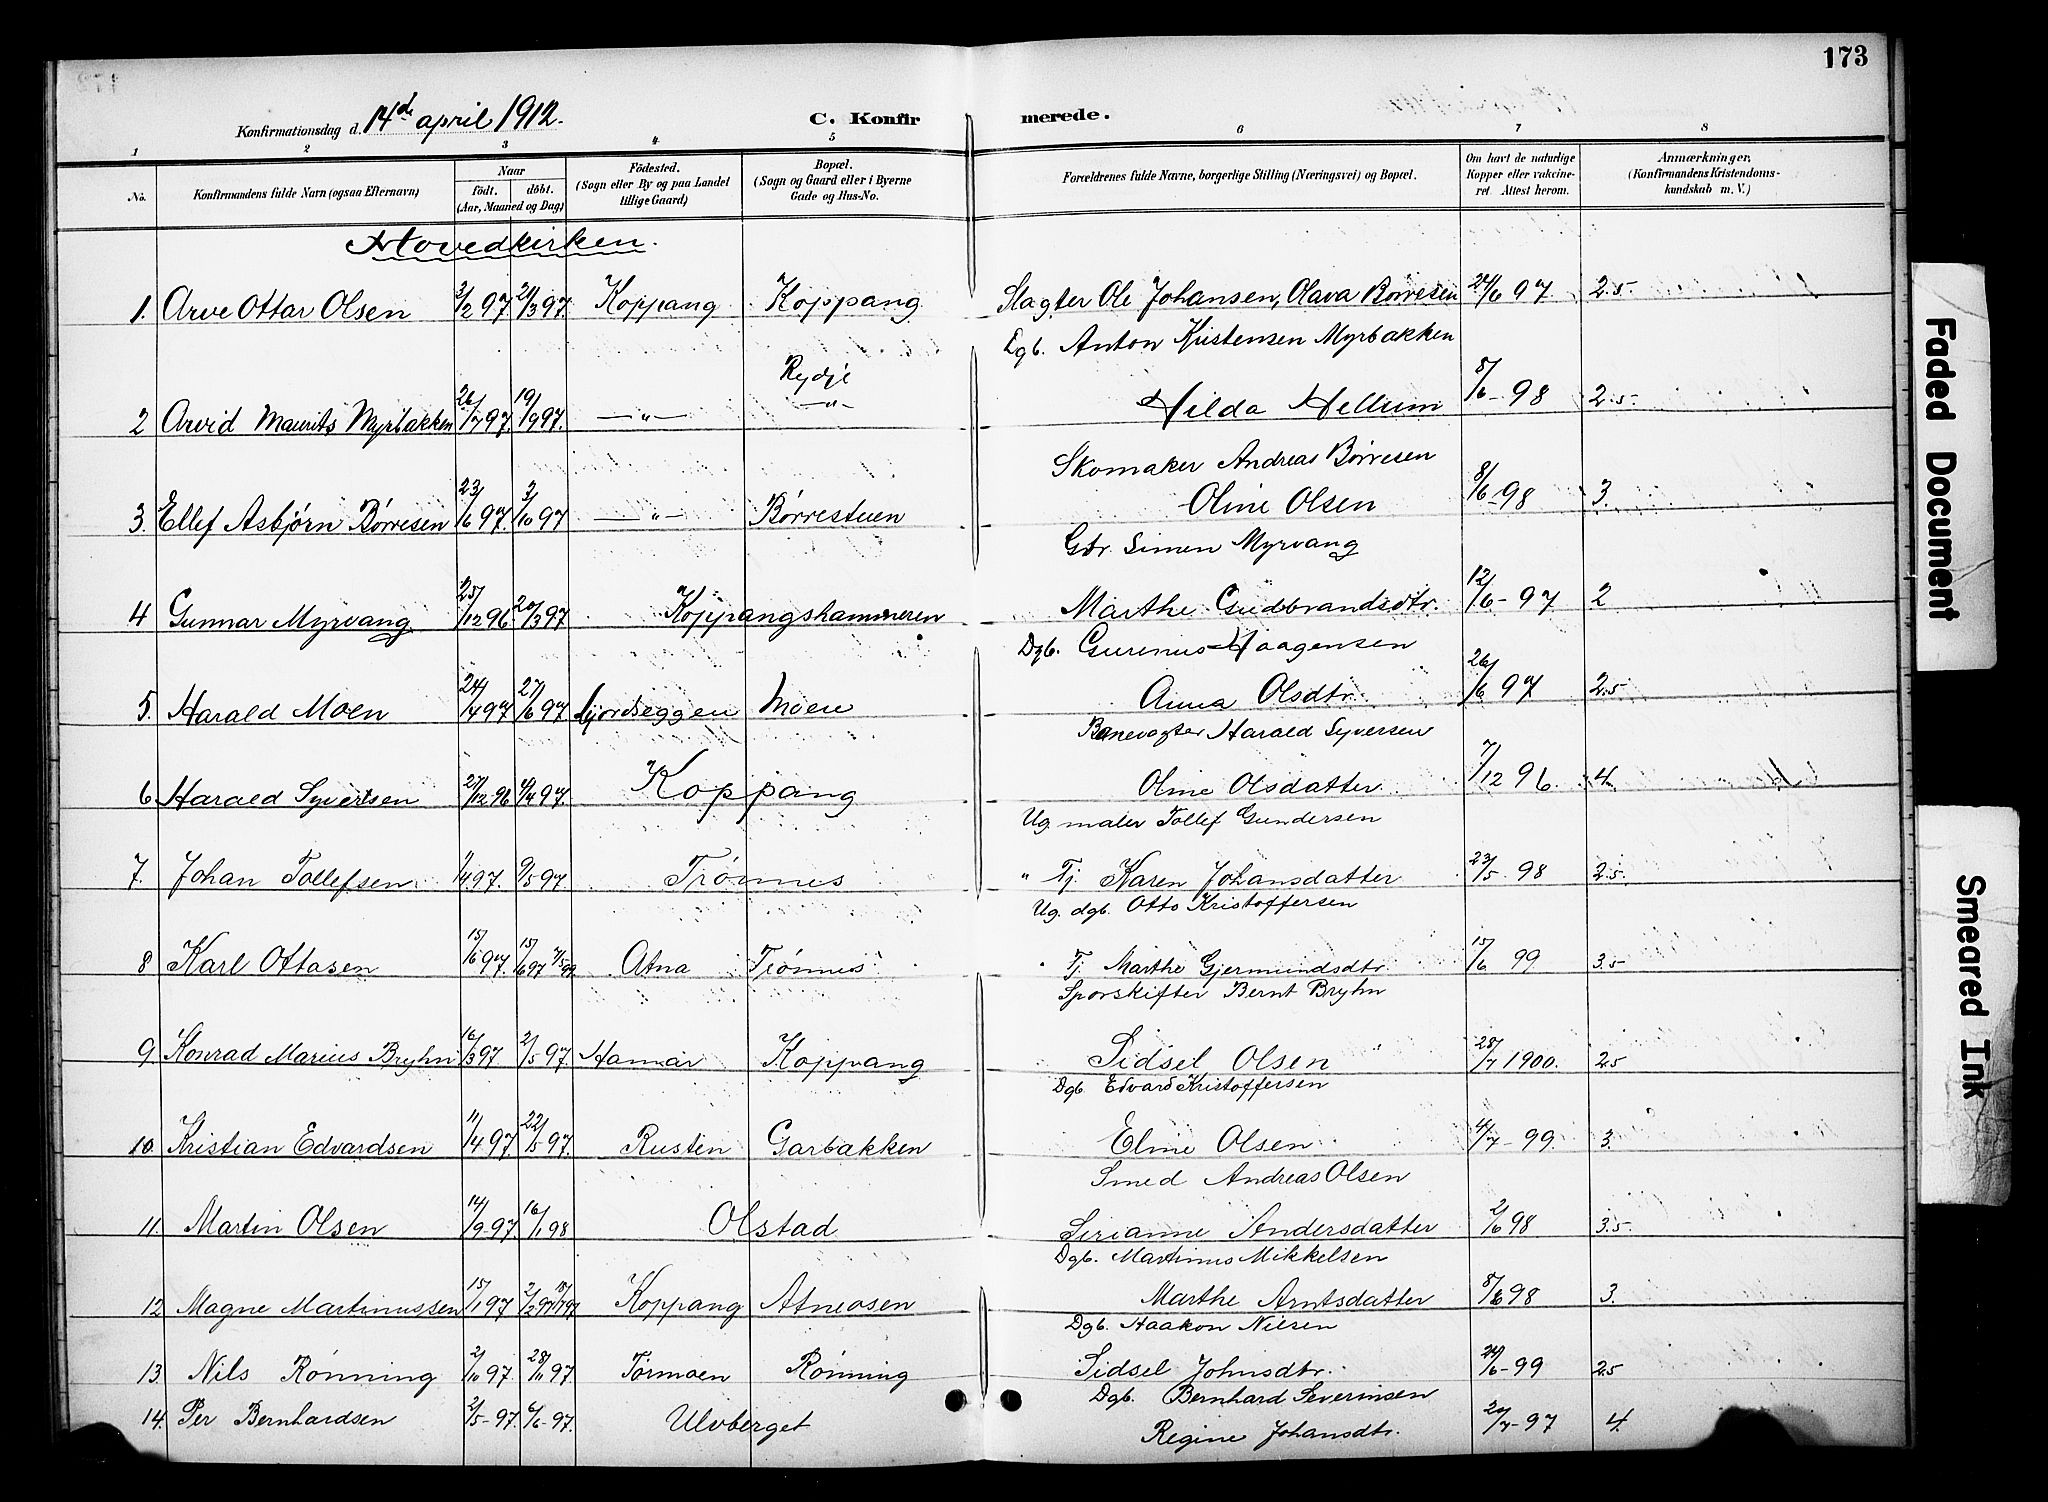 173
Konfirmationsdag d. 14de april 1912.
C. Konfirmerede.
1 2 3 4 5 6 7 8
No. Konfirmandens fulde Navn (ogsaa Efternavn) Naar født. døbt. (Aar, Maaned og Dag) Födested. (Sogn eller By og paa Landet tillige Gaard) Bopæl. (Sogn og Gaard eller i Byerne Gade og Hus-No. Forældrenes fulde Navne, borgerlige Stilling (Næringsvei) og Bopæl. Om havt de naturlige Kopper eller vakcineret. Attest herom. Anmærkninger, (Konfirmandens Kristendomskundskab m. V.)
Hovedkirken.
1. Arve Ottar Olsen 3/2 97. 21/3 97. Koppang Koppang Slagter Ole Johansen, Olava Børresen 24/6 97 2.5
Dgb. Anton Kristensen Myrbakken
Rydje
2 Arvid Maurits Myrbakken 26/7 97. 19/9 97. —"— —"— Hilda Hellum 8/6 - 98 2.5
Skomaker Andreas Børresen
3. Ellef Asbjørn Børresen 23/6 97. 3/10 97 —"— Børrestuen Oline Olsen 8/6 - 98 3.
Gbr. Simen Myrvang
4 Gunnar Myrvang 25/12 96. 20/3 97 Koppangshammeren Marthe Gudbrandsdtr. 12/6 - 97 2
Dgb. Gurenus Haagensen
5. Harald Moen 24/4 97 27/6 97 Moen Anna Olsdtr. 26/6 97 2.5
Banevogter Harald Syversen
6 Harald Syvertsen 27/12 96 4/4 97. Koppang Oline Olsdatter 7/12 96. 4.
Ug. maler Tollef Gundersen
7. Johan Tollefsen 1/4 97. 9/5 97 Trønnes " Tj. Karen Johansdatter 23/5 98 2.5.
Ug. dgb. Otto Kristoffersen
8 Karl Ottosen 15/6 97 15/6 97 7/5 99 Atna Trønnes " Tj Marthe Gjermundsdtr. 15/6 99 3.5
Sporskifter Bernt Bryhn
9. Konrad Marius Bryhn 16/3 97 2/5 97. Hamar Koppang Sidsel Olsen 28/7 1900. 2.5
Dgb Edvard Kristoffersen
10. Kristian Edvardsen 11/4 97 22/5 97. Rusten Garbakken Eline Olsen 4/7 - 99. 3.
Smed Andreas Olsen
11. Martin Olsen 14/9 97. 16/1 98 Olstad Sirianne Andersdatter 2/6 98 3.5
Dgb. Martinus Mikkelsen
12 Magne Martinussen 15/1 97 2/2 97 18/7 97 Koppang Atneosen Marthe Arntsdatter 8/6 98 3.
Dgb. Haakon Nilsen
13. Nils Rønning 2/10 97. 28/11 97 Tørmoen Rønning Sidsel Johnsdtr. 24/6 - 99 2.5
Dgb. Bernhard Severinsen
14. Per Bernhardsen 2/5 - 97. 6/6 - 97. Ulvberget Regine Johansdtr. 21/7 - 97 4.
Faded Document
Smeared Ink